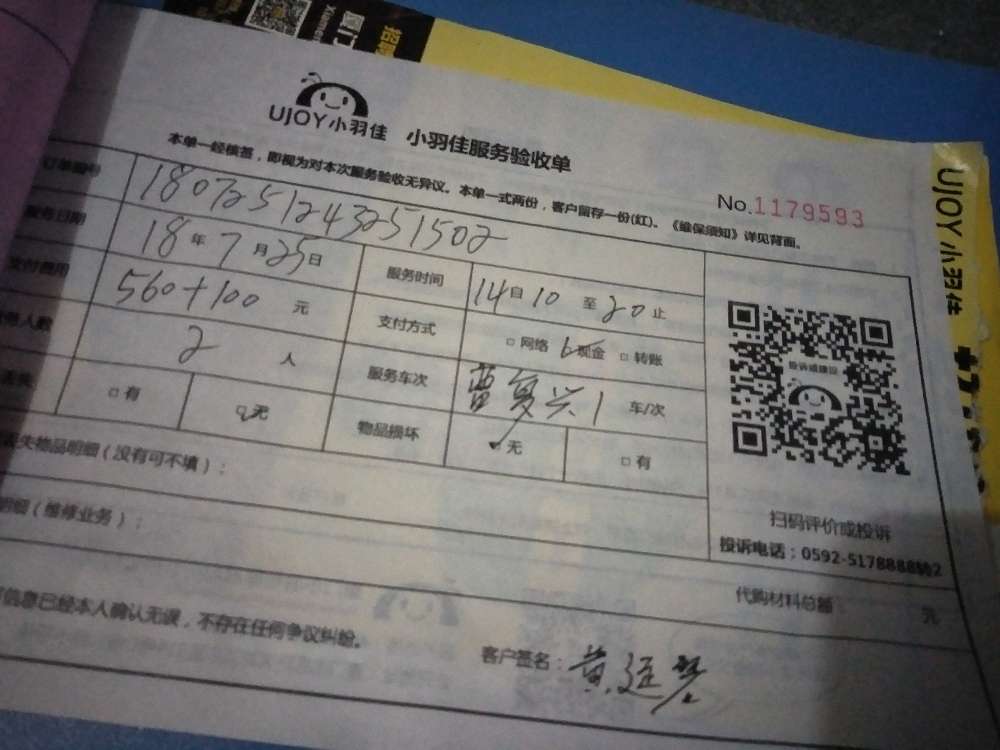 UJOY小羽佳 小羽佳服务验收单
本单一经核签，即视为对本次服务验收无异议。本单一式两份，客户留存一份(红)。《维保须知》详见背面。
No.1179593
订单编号 1807251243251502
服务日期 18年7月25日 服务时间 14自10至20止
支付费用 560+100 元 支付方式 □网络 现金 □转账
人数 2 人 服务车次 曹复兴1 车/次
丢失 □有 □无 物品损坏 ✓无 □有
丢失物品明细(没有可不填)：
明细(维修业务)：
投诉或建议
扫码评价或投诉
投诉电话：0592-5178888转2
代购材料总额 元
信息已经本人确认无误，不存在任何争议纠纷。
客户签名：黄廷
UJOY小羽佳